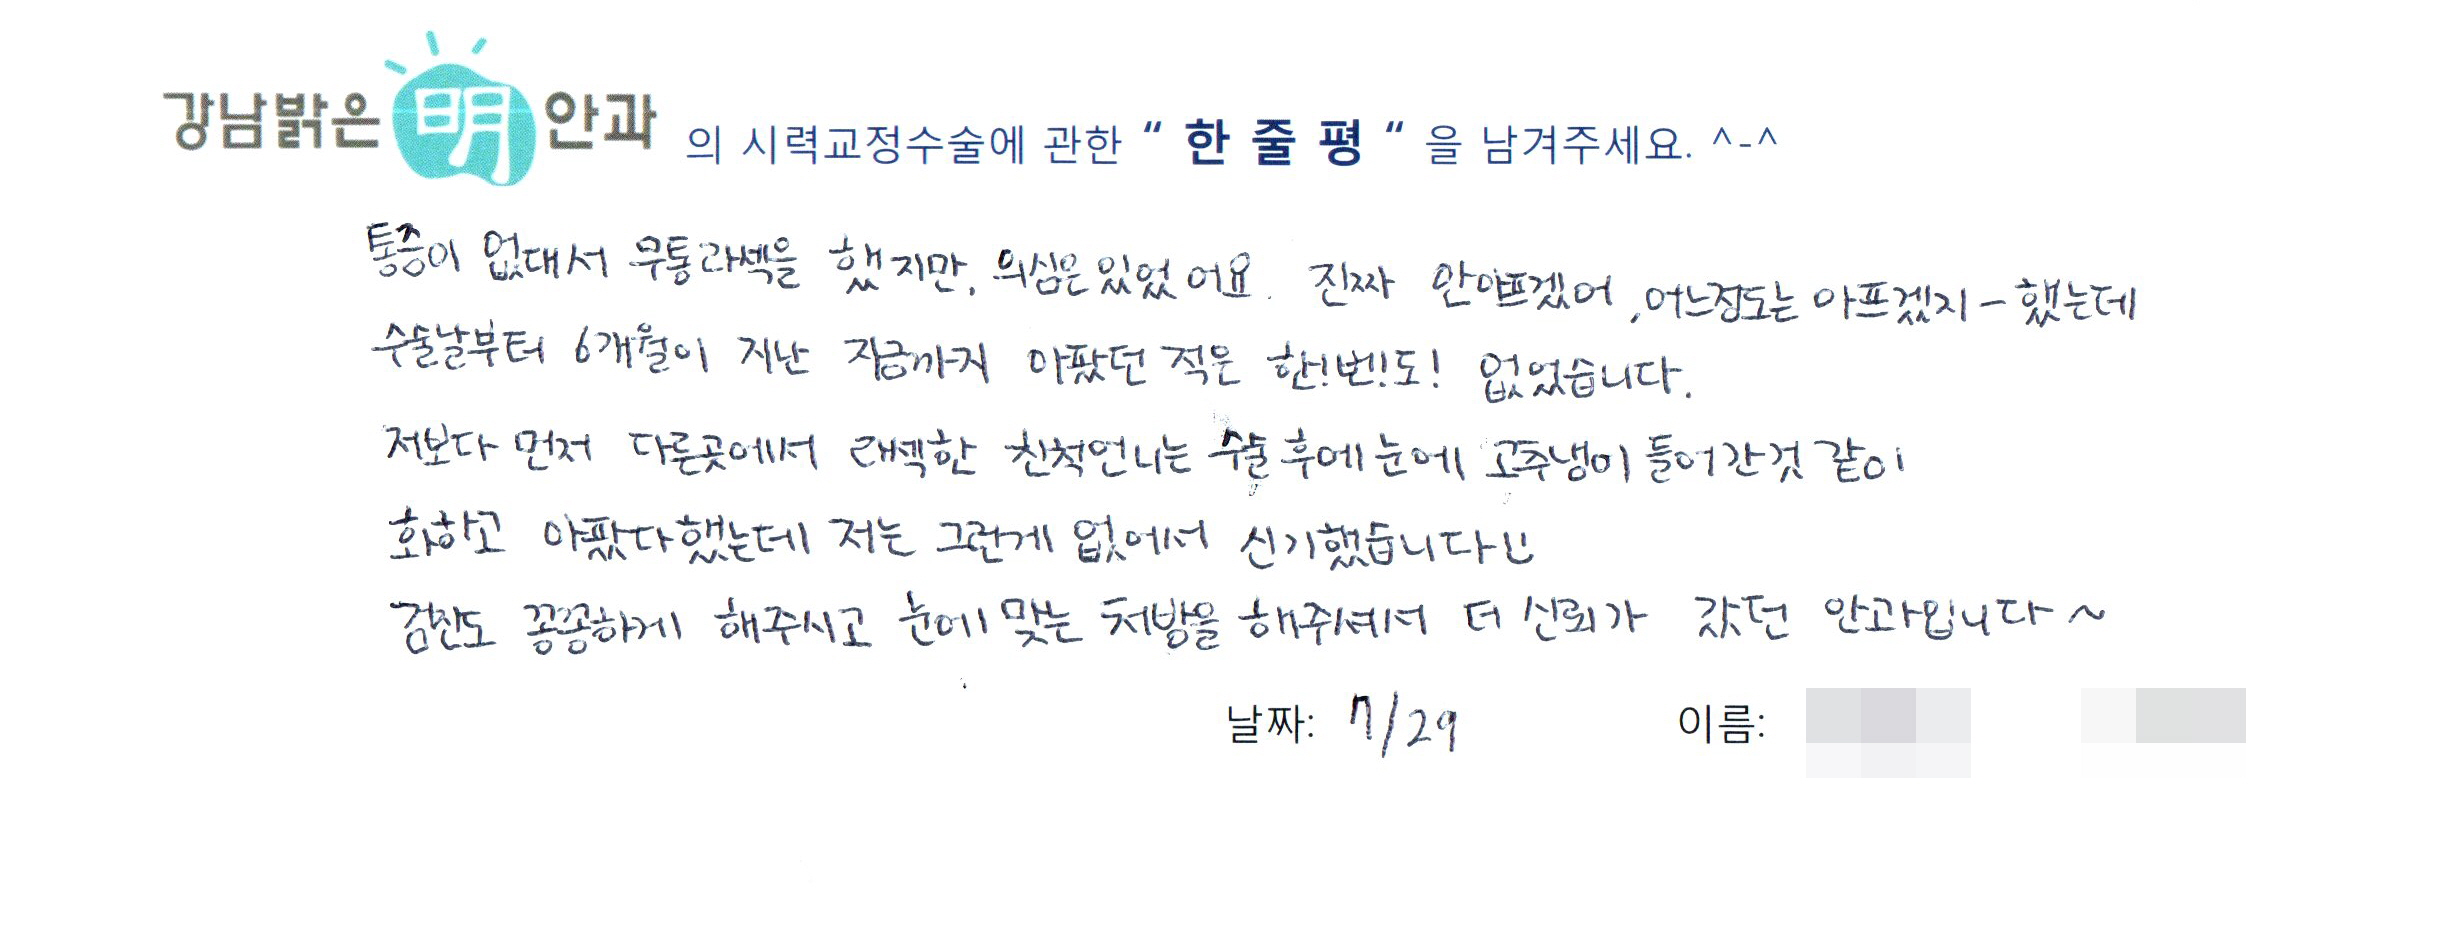 강남밝은明안과 의 시력교정수술에 관한 “ 한 줄 평 “ 을 남겨주세요. ^-^
통증이 없대서 무통라섹을 했지만, 의심은 있었어요. 진짜 안아프겠어, 어느정도는 아프겠지 - 했는데
수술날부터 6개월이 지난 지금까지 아팠던 적은 한!번!도! 없었습니다.
저보다 먼저 다른곳에서 라섹한 친척언니는 수술 후에 눈에 고추냉이 들어간것 같이
화하고 아팠다했는데 저는 그런게 없어서 신기했습니다!!
검진도 꼼꼼하게 해주시고 눈에 맞는 처방을 해주셔서 더 신뢰가 갔던 안과입니다~
날짜: 7/29 이름: